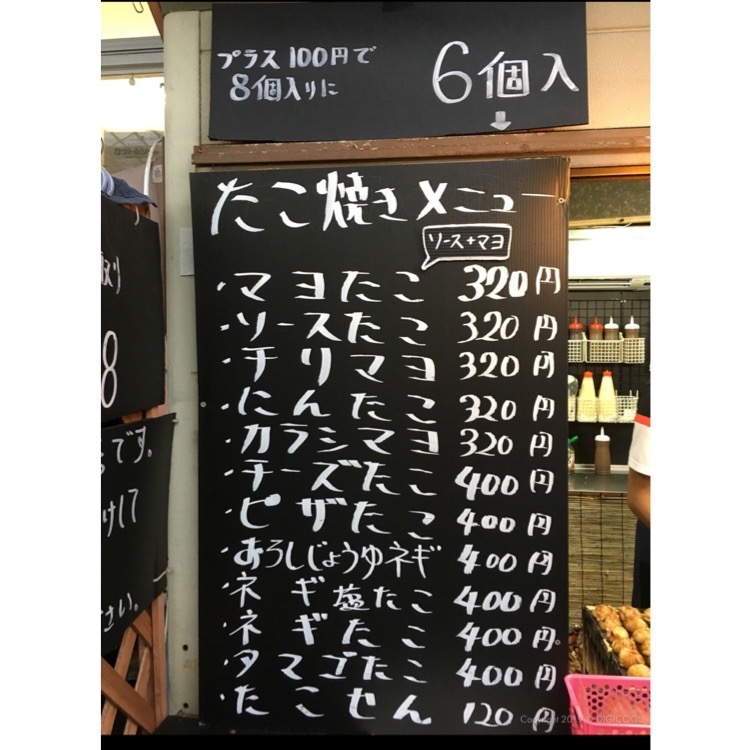 プラス100円で
8個入りに
6個入
たこ焼きメニュー
ソース+マヨ
・マヨたこ 320円
・ソースたこ 320円
・チリマヨ 320円
・にんたこ 320円
・カラシマヨ 320円
・チーズたこ 400円
・ピザたこ 400円
・おろしじょうゆネギ 400円
・ネギ塩たこ 400円
・ネギたこ 400円
・タマゴたこ 400円
・たこせん 120円
8
です。
さい。